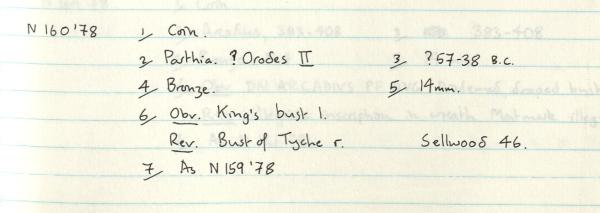 N 160 '78 1/ Coin.
2/ Parthia. ? Orodes II 3/ ? 57-38 B.C.
4/ Bronze. 5/ 14mm.
6/ Obv. King's bust l.
Rev. Bust of Tyche r. Sellwood 46.
7/ As N 159 '78